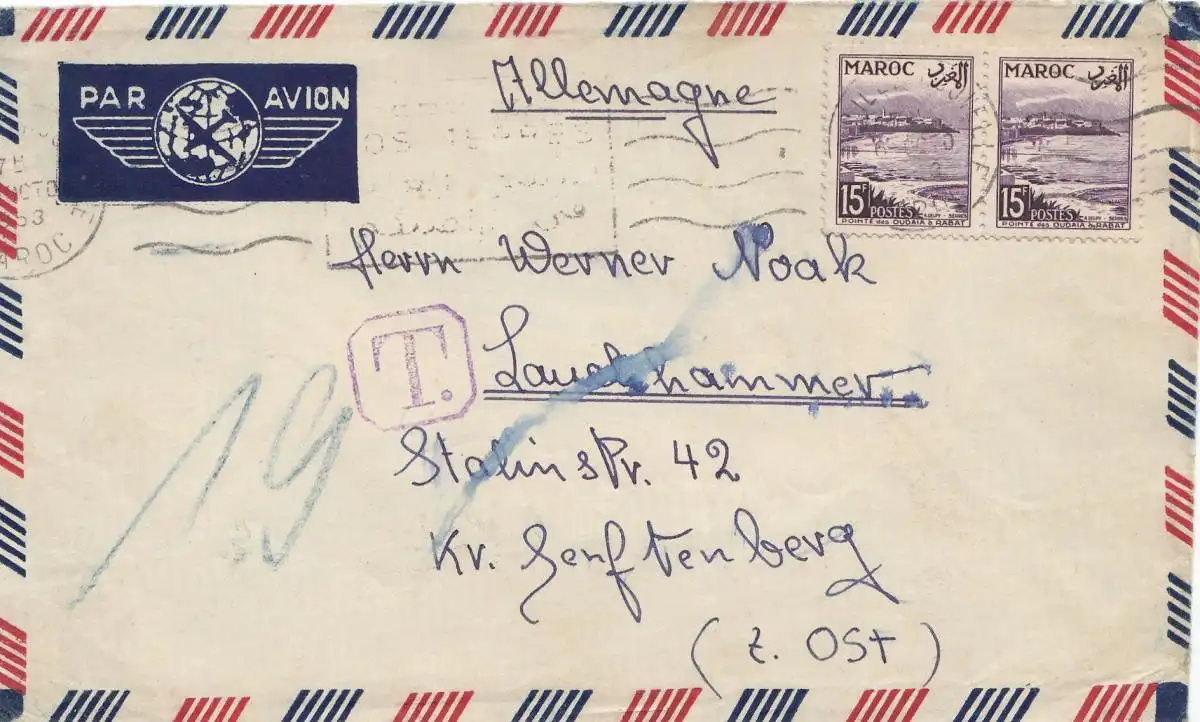 Allemagne
PAR AVION
MAROC المغرب
15F POSTES
POINTE des OUDAIA à RABAT
MAROC المغرب
15F POSTES
POINTE des OUDAIA à RABAT
1953
MAROC
Herrn Werner Noak
Lauchhammer
T.
Stalinstr. 42
Kr. Senftenberg
(Z. OST)
19